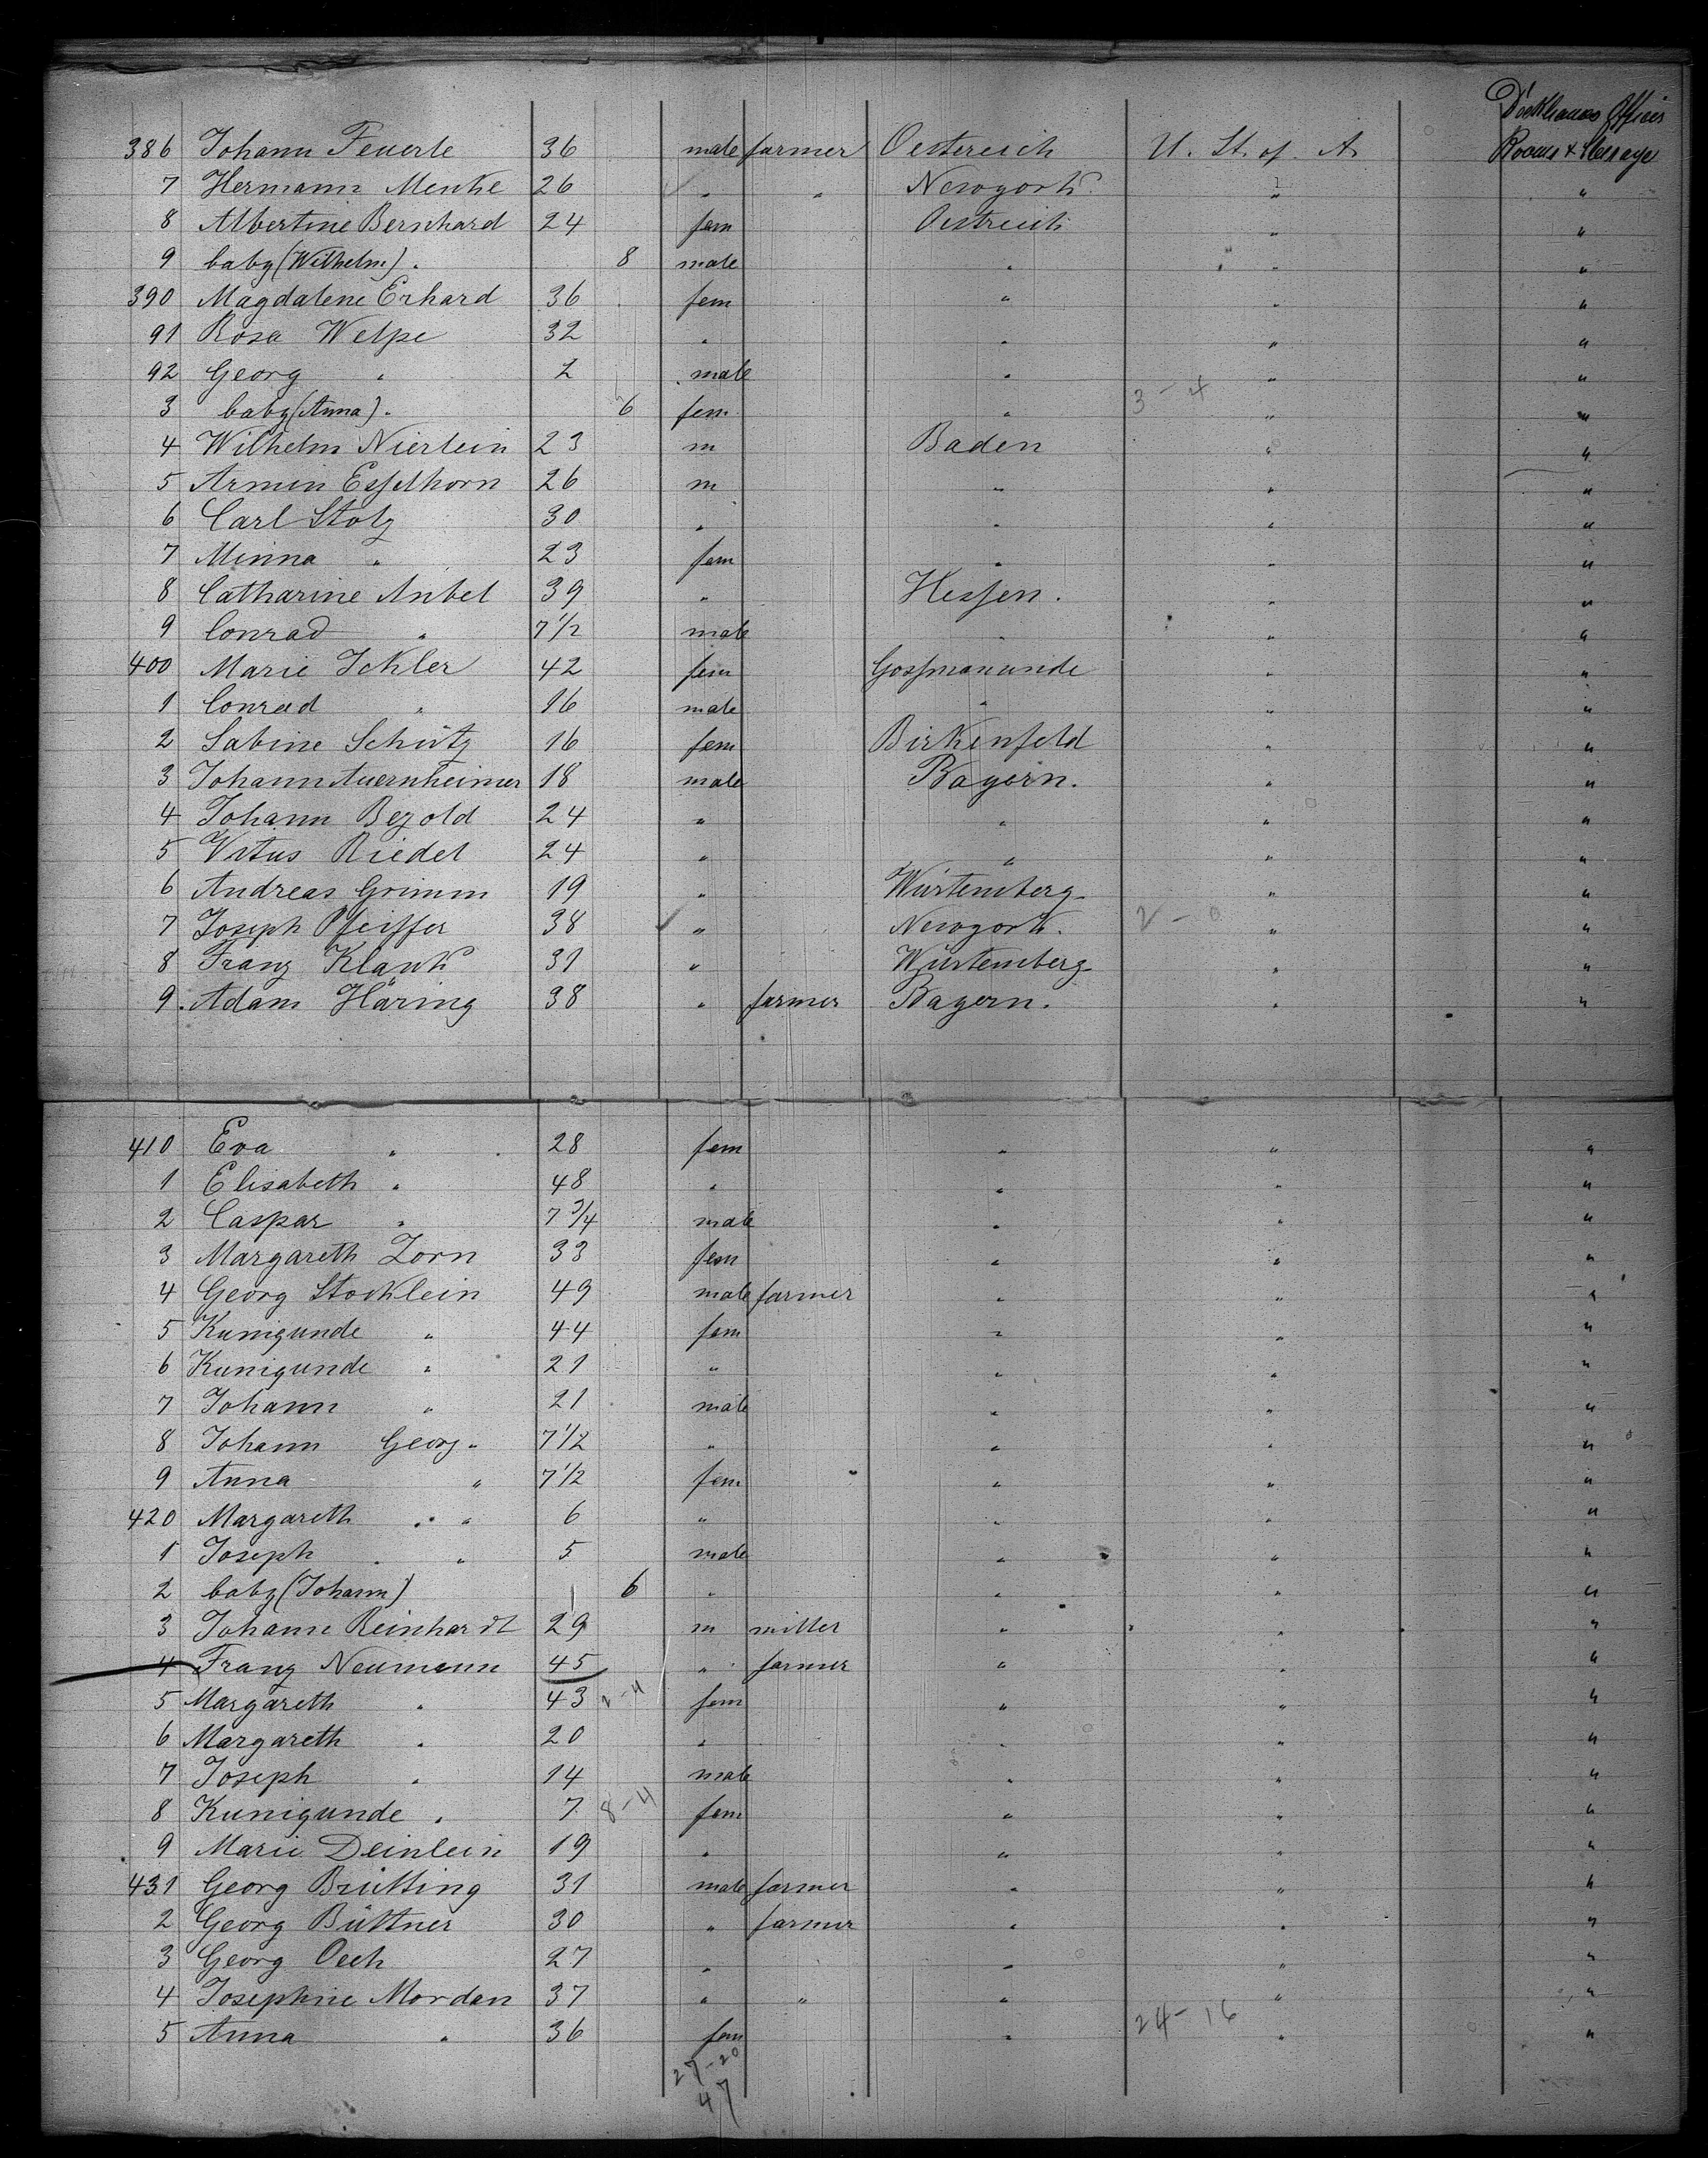 Deckhouse Officers
386 Johann Feuerle 36 male farmer Oestereich U. St. of. A. Rooms & Steerage
7 Hermann Menke 26 " " Newyork " "
8 Albertine Bernhard 24 fem Oestreich " "
9 baby (Wilhelm) " 8 male " " "
390 Magdalene Erhard 36 fem " " "
91 Rosa Welpe 32 " " " "
92 Georg " 2 male " " "
3 baby (Anna) " 6 fem " 3-4 " "
4 Wilhelm Nierlein 23 m Baden " "
5 Armin Esselhorn 26 m " " "
6 Carl Stolz 30 " " " "
7 Minna " 23 fem " " "
8 Catharine Anbel 39 " Hessen. " "
9 Conrad " 7 1/2 male " " "
400 Marie Ickler 42 fem " "
1 Conrad " 16 male " " "
2 Sabine Schütz 16 fem Birkenfeld " "
3 Johann Auernheimer 18 male Bayern. " "
4 Johann Bezold 24 " " " "
5 Vitus Riedel 24 " " " "
6 Andreas Grimm 19 " Würtemberg " "
7 Joseph Pfeiffer 38 " Newyork. 2-0 " "
8 Franz Klank 31 " Würtemberg " "
9. Adam Häring 38 " farmer Bayern. " "
410 Eva " 28 fem " " "
1 Elisabeth " 48 " " " "
2 Caspar " 7 3/4 male " " "
3 Margareth Zorn 33 fem " " "
4 Georg Stocklein 49 male farmer " " "
5 Kunigunde " 44 fem " " "
6 Kunigunde " 21 " " " "
7 Johann " 21 male " " "
8 Johann Georg " 7 1/2 " " " "
9 Anna " 7 1/2 fem " " "
420 Margareth " 6 " " " "
1 Joseph " 5 male " " "
2 baby (Johann) 6 " " " "
3 Johann Reinhardt 29 m miller " " "
4 Franz Neumann 45 " farmer " " "
5 Margareth " 43 fem " " "
6 Margareth " 20 " " " "
7 Joseph " 14 male " " "
8 Kunigunde " 7 8-4 fem " " "
9 Marie Deinlein 19 " " " "
431 Georg Brütting 31 male farmer " " "
2 Georg Büttner 30 " farmer " " "
3 Georg Oech 27 " " " "
4 Josephine Mordan 37 " " " " "
5 Anna " 36 fem " 24-16 " "
27-20
47